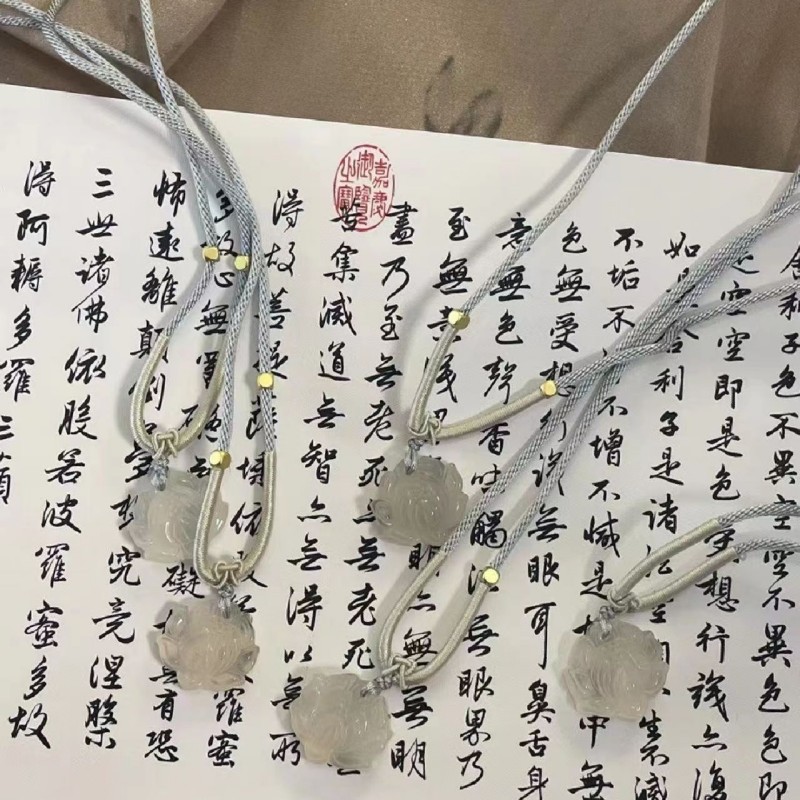 舍利子色不異空空不異色色即
是空空即是色想行識亦復
如是舍利子是諸生不滅
不垢不不增不減是中無
色無受想行識無眼耳鼻舌身
意無色聲香味觸法無眼界乃
至無意識界明亦無無明
盡乃至無老死無老死
苦集滅道無智亦無得以無所
得故菩提薩埵依羅蜜
多故心無罣礙礙有恐
怖遠離顛倒夢想究竟涅槃
三世諸佛依般若波羅蜜多故
得阿耨多羅三藐
嘉慶御覽之寶